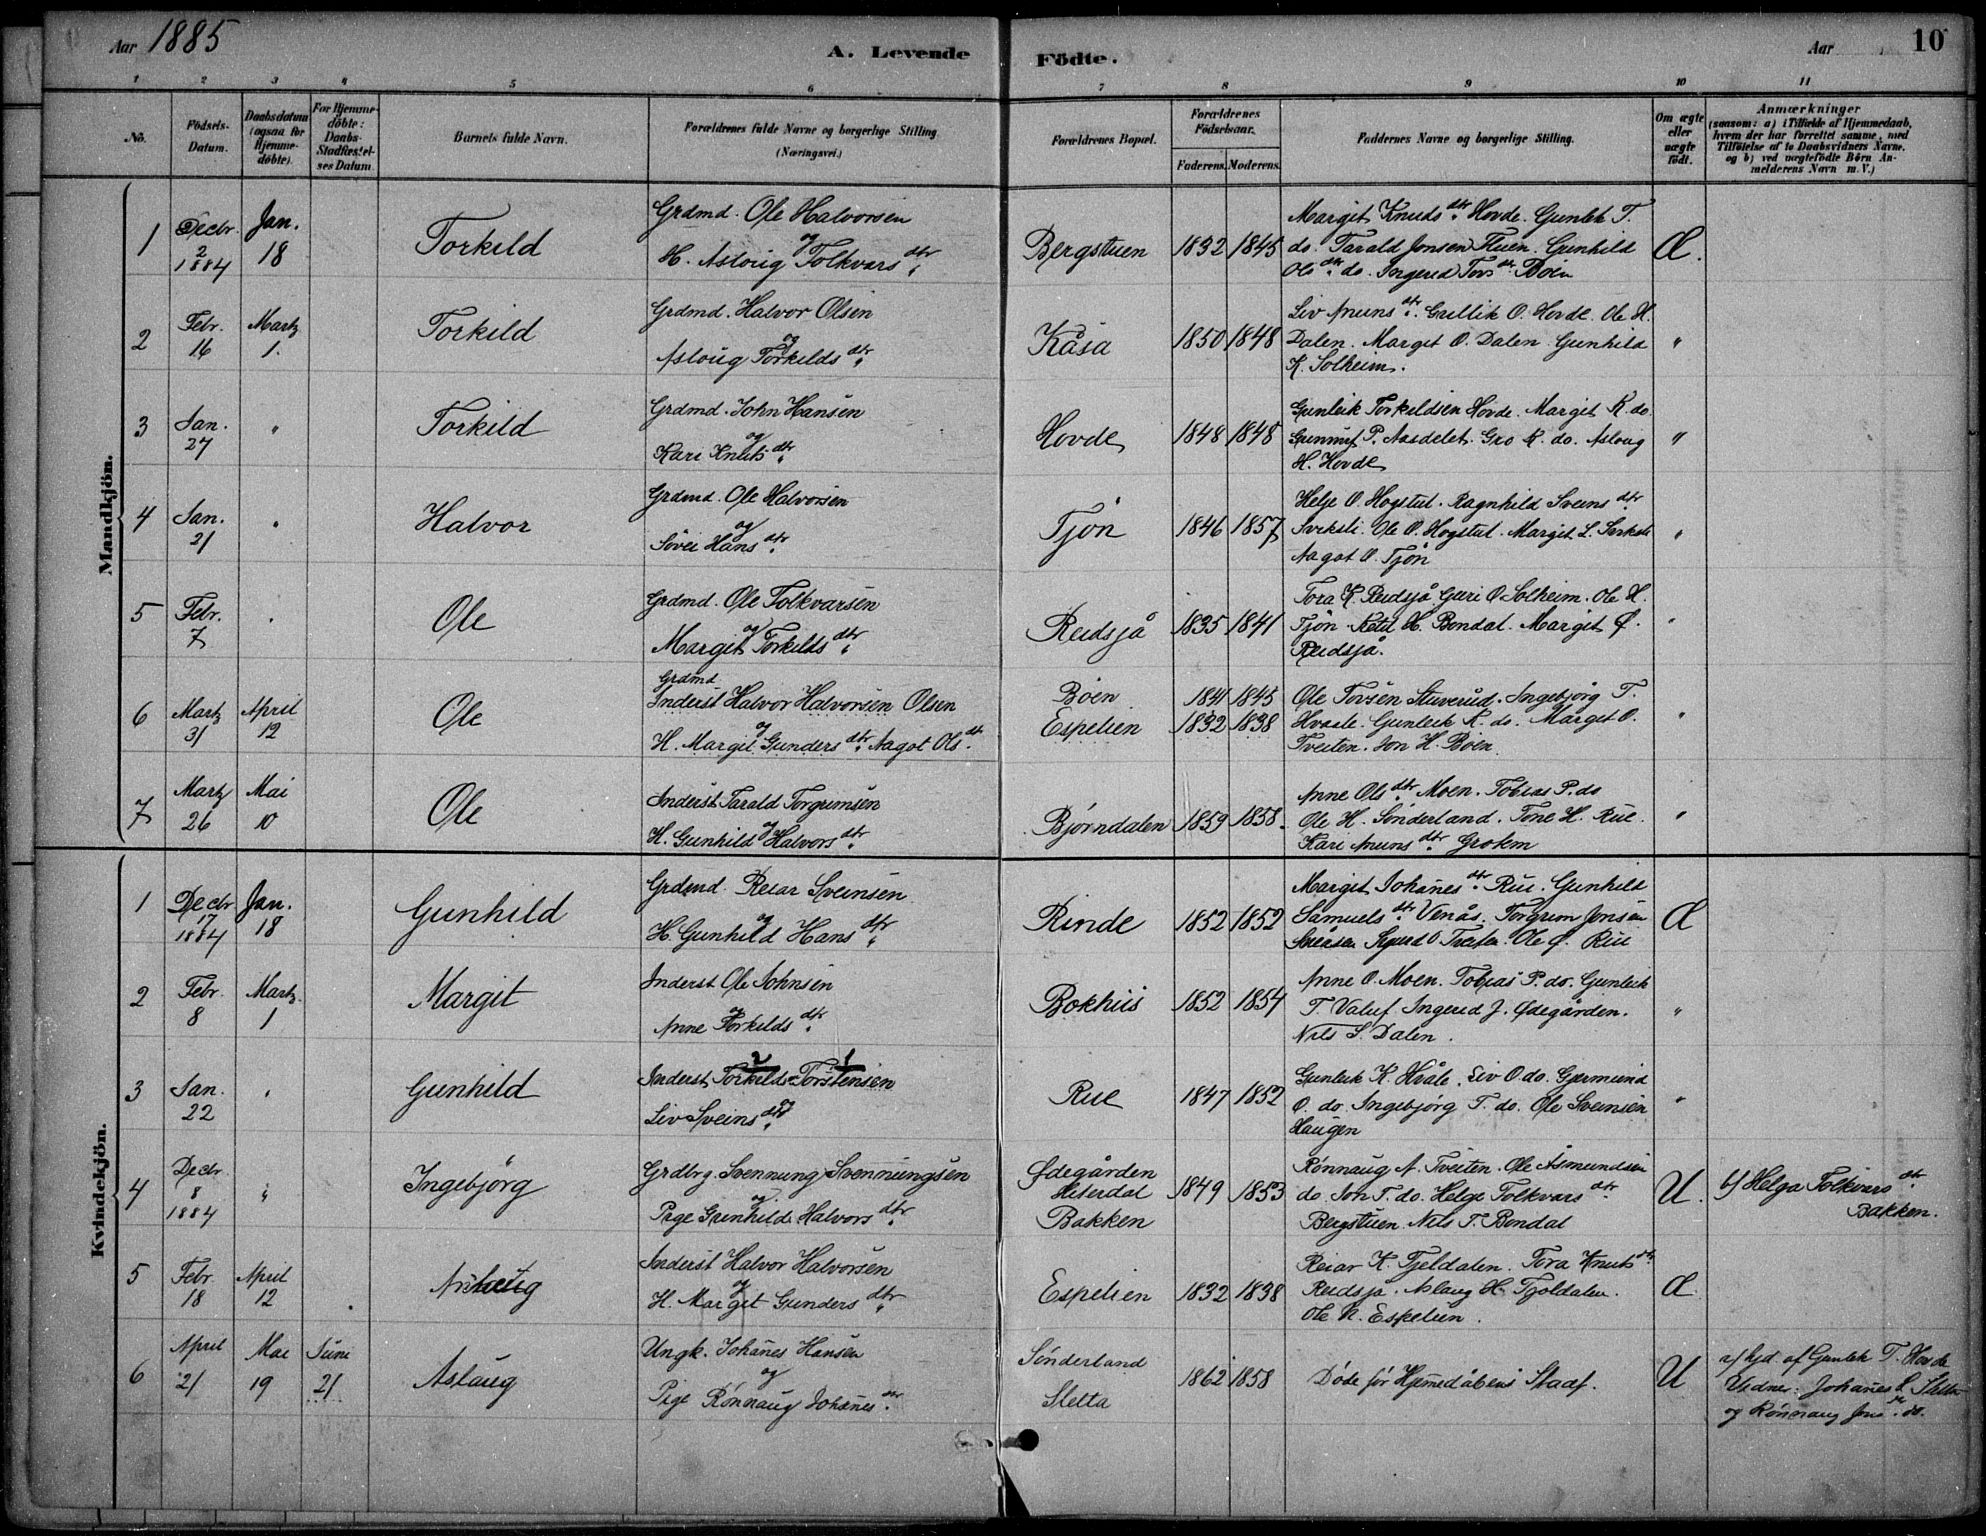 Aar 1885
A. Levende
Fødte.
Aar
10
1 2 3 4 5 6 7 8 9 10 11
No.
Fødsels-Datum.
Daabsdatum (ogsaa for Hjemmedøbte).
For Hjemmedøbte: Daabs-Stadfæstelses Datum.
Barnets fulde Navn.
Forældrenes fulde Navne og borgerlige Stilling (Næringsvei.)
Forældrenes Bopæl.
Forældrenes Fødselsaar.
Faderens. Moderens.
Faddernes Navne og borgerlige Stilling.
Om ægte eller uægte født.
Anmærkninger
(saasom: a) i Tilfælde af Hjemmedaab, hvem der har forrettet samme, med Tilføielse af to Daabsvidners Navne. og b) ved uægtefødte Børn Anmelderens Navn m. V.)
Mandkjøn.
1 Decbr. 2 1884 Jan. 18 Torkild
Grdmd. Ole Halvorsen
og
H. Asloug Folkvars dtr.
Bergstuen 1832 1845
Margit Knuds dtr. Hovde. Gunlek T.
do. Tarald Jonsen Fluen. Gunhild
Ols dtr. do. Ingerid Tovs dtr. Boen
Æ.
2 Febr. 16 Martz 1. Torkild
Grdmd. Halvor Olsen
og
Asloug Torkilds dtr.
Kåsa 1850 1848
Liv Amuns dtr. Gullik O. Hovde. Ole H.
Dalen. Margit O. Dalen. Gunhild
K. Solheim.
"
3 Jan. 27 " Torkild
Grdmd. John Hansen
og
Kari Knuts dtr.
Hovde 1848 1848
Gunleik Torkildsen Hovde. Margit K. do.
Gunnuf P. Aasdelet. Gro K. do. Asloug
H. Hovde
"
4 Jan. 21 " Halvor
Grdmd. Ole Halvorsen
og
Søvei Hans dtr.
Tjøn 1846 1857
Helje O. Hogstul. Ragnhild Sveins dtr.
Ole O. Hogstul. Margit L.
Aagot O. Tjøn
"
5 Febr. 7 " Ole
Grdmd. Ole Folkvarsen
og
Margit Torkilds dtr.
Reidsjå 1835 1841
Tora K. Reidsjå Guri O Solheim. Ole H.
Tjøn. Ketil H. Bondal. Margit Ø.
Reidsjå.
"
6 Martz 31 April 12 Ole
Grdmd.
Inderst Halvor Halvorsen Olsen
og
H. Margit Gunders dtr. Aagot Ols dtr.
Bøen 1841 1845
Espelien 1832 1838
Ole Tovsen Stuverud. Ingebjørg T.
Hvaale. Gunleik K. do. Margit O.
Tveiten. Jon H. Bøen
"
7 Martz 26 Mai 10 Ole
Inderst Tarald Torgrimsen
og
H. Gunhild Halvors dtr.
Bjørndalen 1859 1858.
Anne Ols dtr. Moen. Tobias P. do
Ole H. Sønderland. Tone H. Rue.
Kari Amuns dtr. Grotem
"
Kvindekjøn.
1 Decbr 17 1884 Jan. 18 Gunhild
Grdmd. Reiar Sveinsen
og
H. Gunhild Hans dtr.
Rinde 1852 1852
Margit Johanes dtr. Rue. Gunhild
Samuels dtr. Venås. Torgrim Jonsen
Sigurd O Tveiten. Ole Ø. Rue
Æ
2 Febr. 8 Martz. 1 Margit
Inderst Ole Johnsen
og
Anne Torkilds dtr.
Bokhus 1852 1854
Anne O. Moen. Tobias P. do. Gunleik
T. Valuf. Ingerid J. Ødegården.
Nils S. Dalen.
"
3 Jan. 22 " Gunhild
2 1
Inderst Torkild Torstensen
og
Liv Sveins dtr.
Rue 1847 1852
Gunleik K. Hvåle. Liv O do. Gjermund
O. do. Ingebjørg T. do. Ole Sveinsen
Haugen
"
4 Decbr. 8 1884 " Ingebjørg
Grdbrg. Svennung Svennungsen
og
Pige Gunhild Halvors dtr.
Ødegården
Hiterdal
Bakken
1849 1853
Rønnaug A. Tveiten. Ole Asmundsen
do. Jon T. do. Helge Folkvars dtr.
Bergstuen. Nils T. Bondal
U. b/ Helga Folkvars dtr.
Bakken.
5 Febr. 18 April 12
Inderst Halvor Halvorsen
og
H. Margit Gunders dtr.
Espelien 1832 1838
Reiar K. Tjeldalen. Tora Knuts dtr.
Reidsjå. Aslaug H. Tjoldalen.
Ole N. Espelien.
Æ.
6 April 21 Mai 19 Juni 21 Aslaug
Ungk. Johanes Hansen
og
Pige Rønnaug Johanes dtr.
Sønderland
Sletta
1862 1858
Døde før Hjemedåbens Stadf.
U a/ hjd. af Gunlek T. Hovde
Vidner: Johanes
og Rønnaug Jons dtr. do.